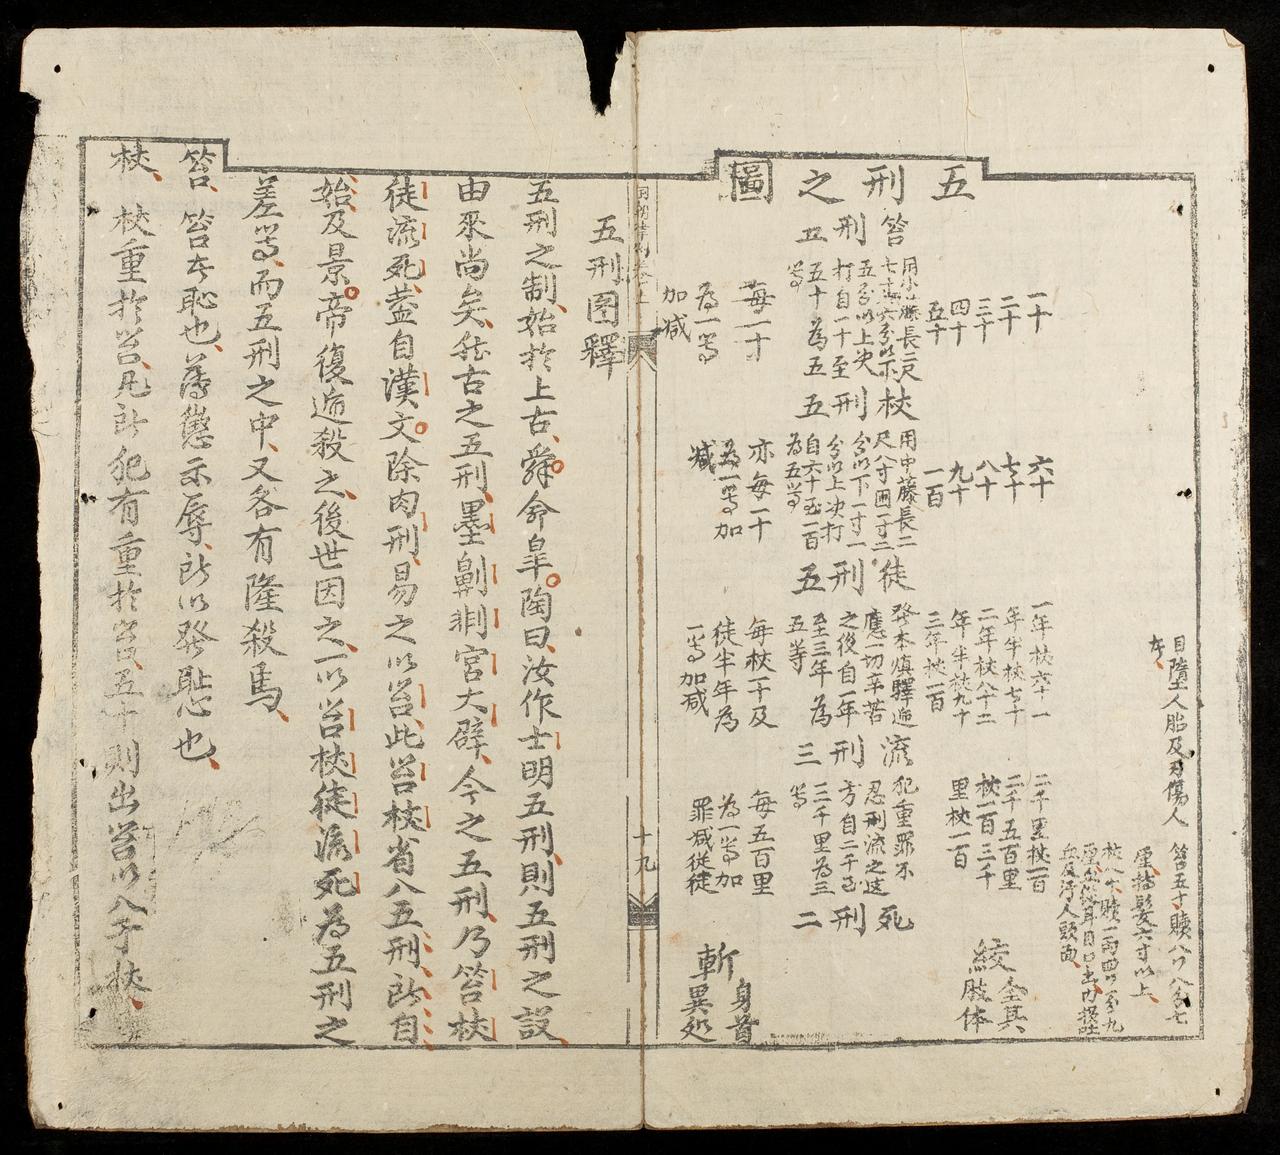 五刑之圖
目墮人胎及刃傷人
笞五十贖
六寸以上
笞刑五
一十
二十
三十
四十
五十
打自一十至
五十為五
等
每一十
為一等
加减
杖刑五
六十
七十
八十
九十
一百
用中藤長二
尺八寸囲一寸二
分以下一寸一
分以上决打
自六十至一百
為五等
亦每一十
為一等加
减
徒刑五
一年杖六十一
年半杖七十
二年杖八十二
年半杖九十
三年杖一百
發本鎮驛逓
應一切辛苦
之後自一年
至三年為
五等
每杖一十及
徒半年為
一等加减
流刑三
二千里杖一百
二千五百里
杖一百三千
里杖一百
犯重罪不
忍刑流之逺
方自二千至
三千里為三
等
每五百里
為一等加
罪减従徒
死刑二
絞
全其
肢体
斬
身首
異処
十九
五刑图釋
五刑之制始於上古舜命皐陶曰汝作士明五刑則五刑之設
由來尚矣然古之五刑墨劓剕宮大辟今之五刑乃笞杖
徒流死盖自漢文除肉刑易之以笞此笞杖省入五刑所自
始及景帝復逓殺之後世因之以笞杖徒流死為五刑之
差等而五刑之中又各有隆殺焉
笞 笞者恥也薄懲示辱所以發恥心也
杖 杖重於笞凡所犯有重於笞五十則出笞以入于杖